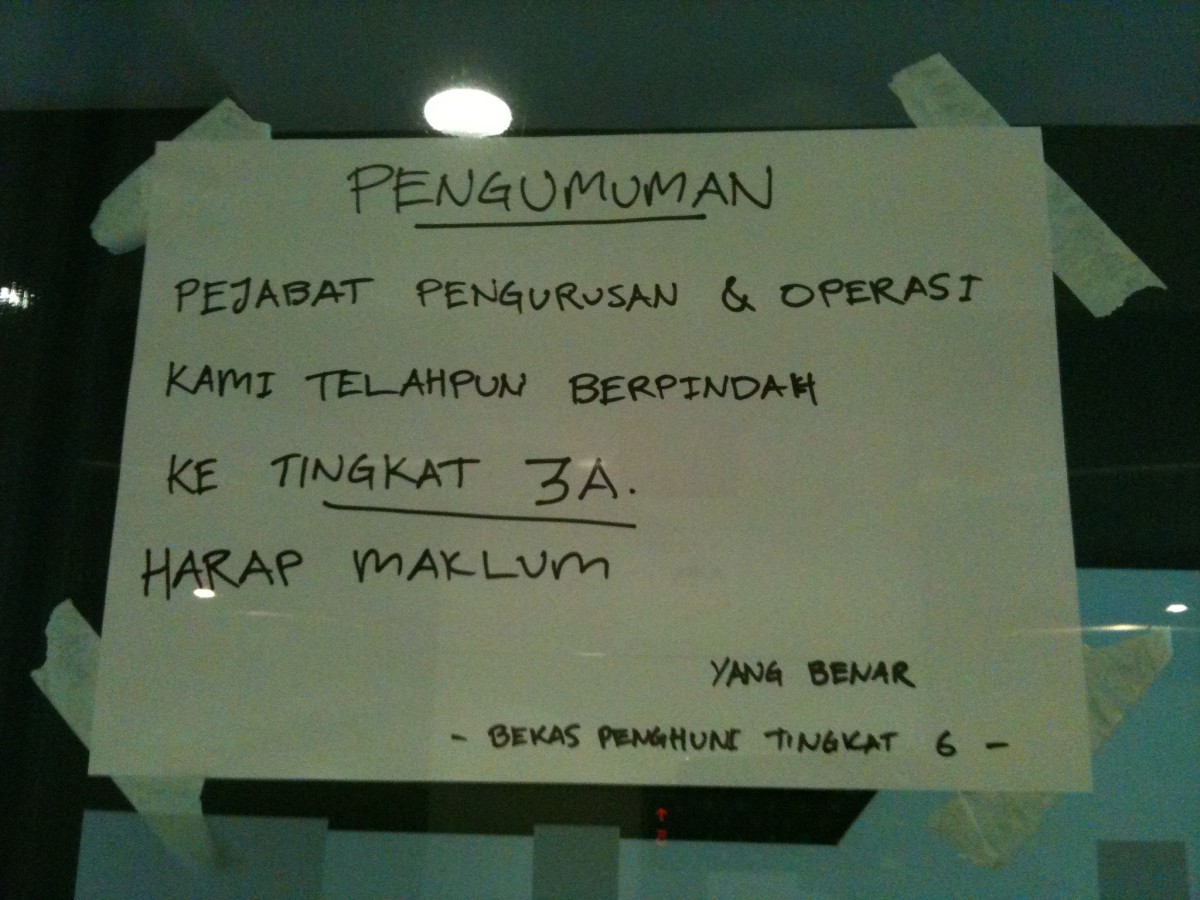 PENGUMUMAN
PEJABAT PENGURUSAN & OPERASI
KAMI TELAHPUN BERPINDAH
KE TINGKAT 3A.
HARAP MAKLUM
YANG BENAR
- BEKAS PENGHUNI TINGKAT 6 -